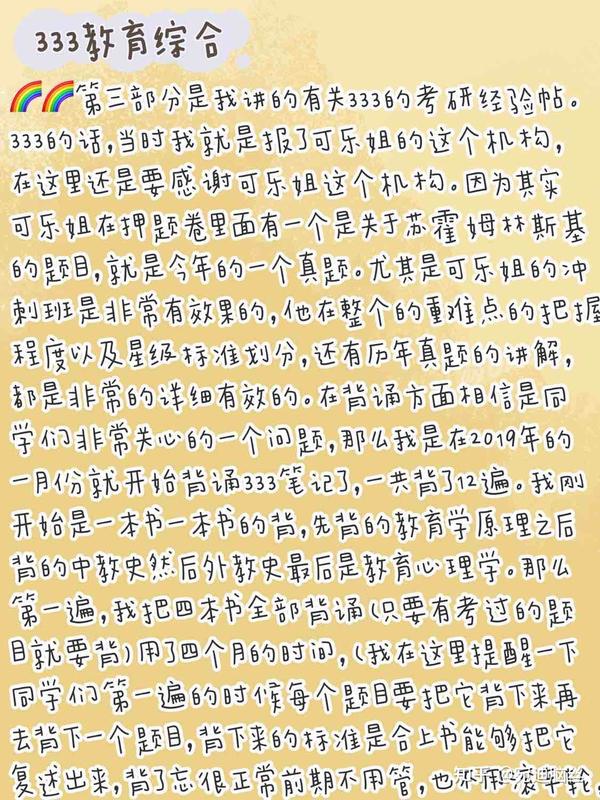 333教育综合
第三部分是我讲的有关333的考研经验帖。
333的话,当时我就是报了可乐姐的这个机构,
在这里还是要感谢可乐姐这个机构。因为其实
可乐姐在押题卷里面有一个是关于苏霍姆林斯基
的题目,就是今年的一个真题。尤其是可乐姐的冲
刺班是非常有效果的,他在整个的重难点的把握
程度以及星级标准划分,还有历年真题的讲解,
都是非常的详细有效的。在背诵方面相信是同
学们非常关心的一个问题,那么我是在2019年的
一月份就开始背诵333笔记了,一共背了12遍。我刚
开始是一本书一本书的背,先背的教育学原理之后
背的中教史然后外教史最后是教育心理学。那么
第一遍,我把四本书全部背诵(只要有考过的题
目就要背)用了四个月的时间,(我在这里提醒一下
同学们第一遍的时候每个题目要把它背下来再
去背下一个题目,背下来的标准是合上书能够把它
复述出来,背了忘很正常前期不用管,也不用滚
知乎